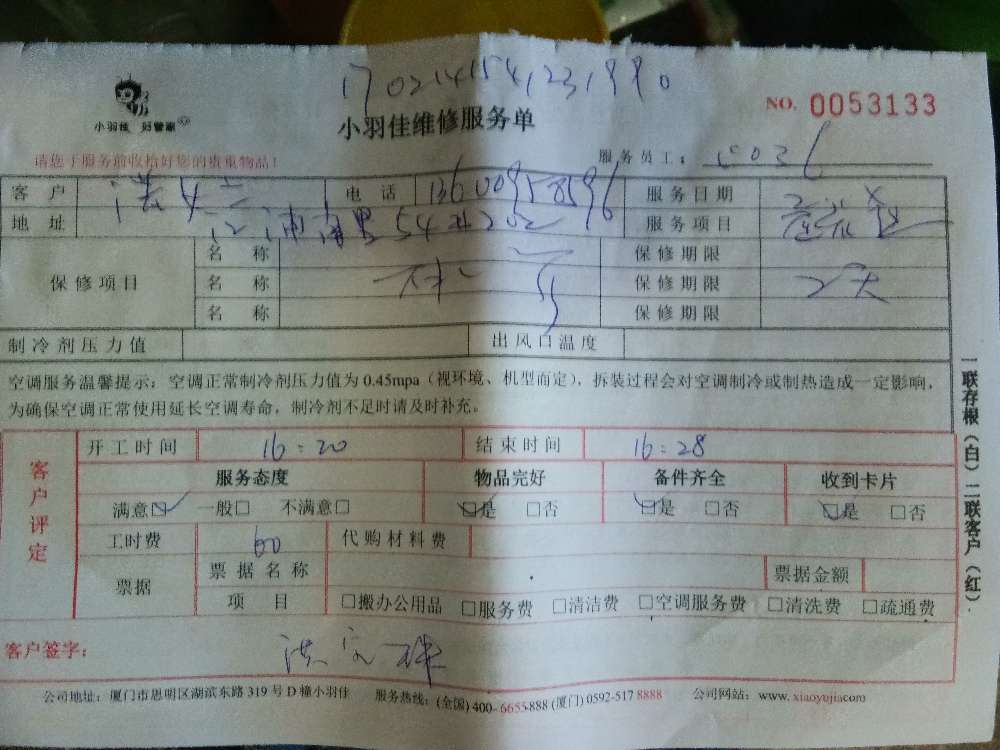 1702141541231990
小羽佳 好管家
小羽佳维修服务单
NO. 0053133
请您于服务前收拾好您的贵重物品!
服务员工:
客 户 电 话 服务日期
地 址 服务项目
保修项目 名 称 保修期限
名 称 保修期限
名 称 保修期限
制冷剂压力值 出风口温度
空调服务温馨提示:空调正常制冷剂压力值为0.45mpa(视环境、机型而定),拆装过程会对空调制冷或制热造成一定影响,
为确保空调正常使用延长空调寿命,制冷剂不足时请及时补充。
客户评定
开工时间 16:20 结束时间 16:28
服务态度 物品完好 备件齐全 收到卡片
满意☑ 一般□ 不满意□ ☑是 □否 ☑是 □否 ☑是 □否
工时费 60 代购材料费
票据 票据名称 票据金额
项 目 □搬办公用品 □服务费 □清洁费 □空调服务费 □清洗费 □疏通费
客户签字:
公司地址:厦门市思明区湖滨东路319号D幢小羽佳 服务热线:(全国)400-6655-888 (厦门) 0592-517 8888 公司网站:www.xiaoyujia.com
一联存根(白)二联客户(红)